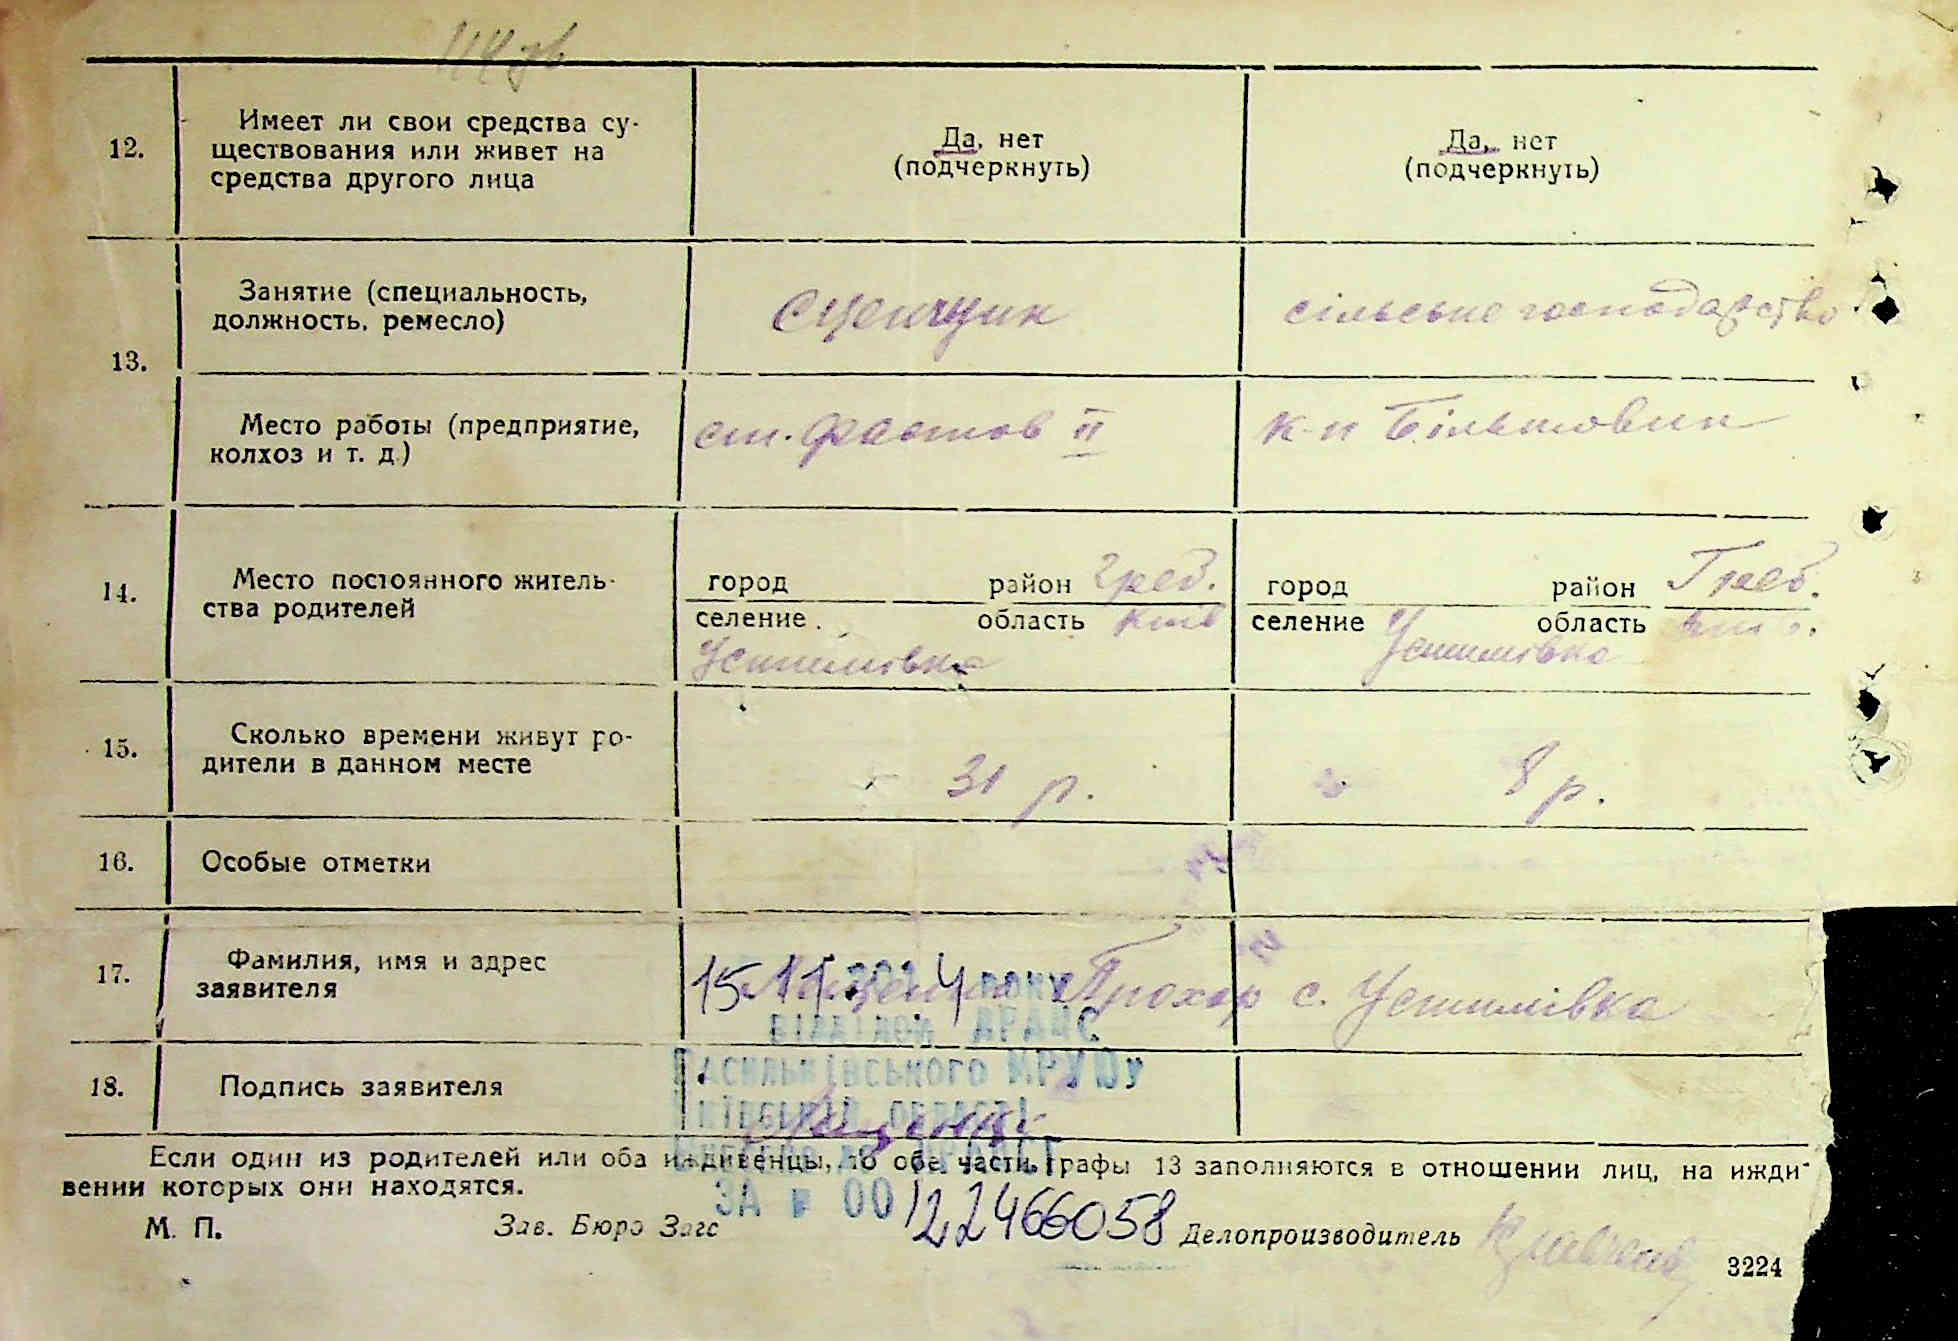 12.
Имеет ли свои средства су-
ществования или живет на
средства другого лица
Да, нет
(подчеркнуть)
Да, нет
(подчеркнуть)
13.
Занятие (специальность,
должность, ремесло)
сцепчик
сільське господарство
Место работы (предприятие,
колхоз и т. д.)
ст. Фастов II
к-п Більшовик
14.
Место постоянного житель-
ства родителей
город район Греб.
селение область Київ
Устимівка
город район Греб.
селение Устимівка область Київ.
15.
Сколько времени живут ро-
дители в данном месте
31 р.
8 р.
16.
Особые отметки
17.
Фамилия, имя и адрес
заявителя
Прохор с. Устимівка
15 11 року
відділом ДРАЦС
Васильківського МРУЮ
Київської області
18.
Подпись заявителя
Если один из родителей или оба иждивенцы, то обе части графы 13 заполняются в отношении лиц, на ижди-
вении которых они находятся.
ЗА № 00122466058
М. П.
Зав. Бюро Загс
Делопроизводитель
3224